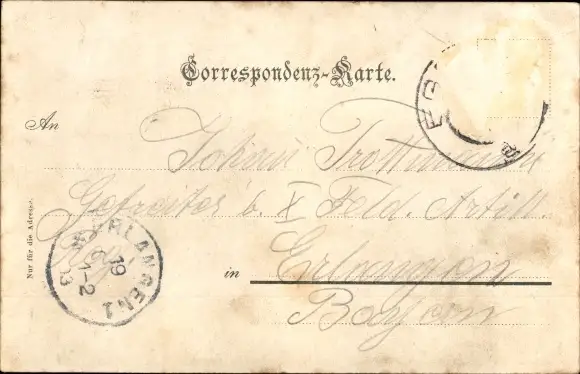 Correspondenz-Karte.
An
Johann
Gefreiter b. X Feld. Artill.
Rg.
in Erlangen
Bayern
Nur für die Adresse.
ERLANGEN 1
19
1-2
03